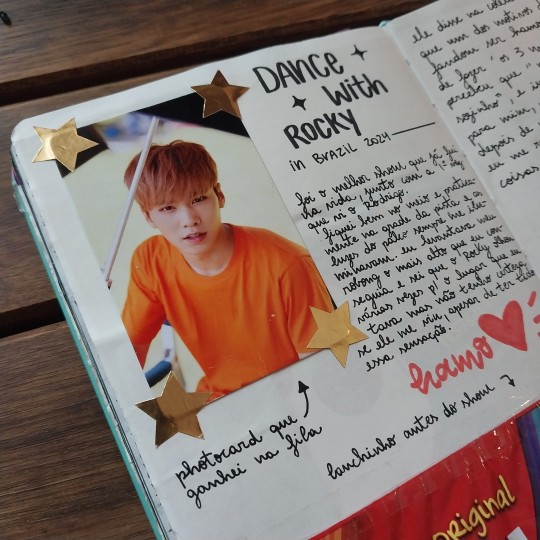 DANCE
with
ROCKY
in BRAZIL 2024
foi o melhor show que já fui
na vida, junto com a 1ª vez
que vi o Rodrigo.
fiquei bem no meio e pratica-
mente na grade da pista e as
luzes do palco sempre me ilu-
minavam. eu levantava meu
robong o mais alto que eu con-
seguia e sei que o Rocky olhou
várias vezes p/ o lugar que eu
tava mas não tenho certeza
se ele me viu, apesar de ter tido
essa sensação.
hamo
photocard que
ganhei na fila
lanchinho antes do show
original
ele disse na
que um dos motivos
fandom ser hamo
de fazer, os 3
percebeu que
sozinho", e
para mim,
depois de
eu me
coisas